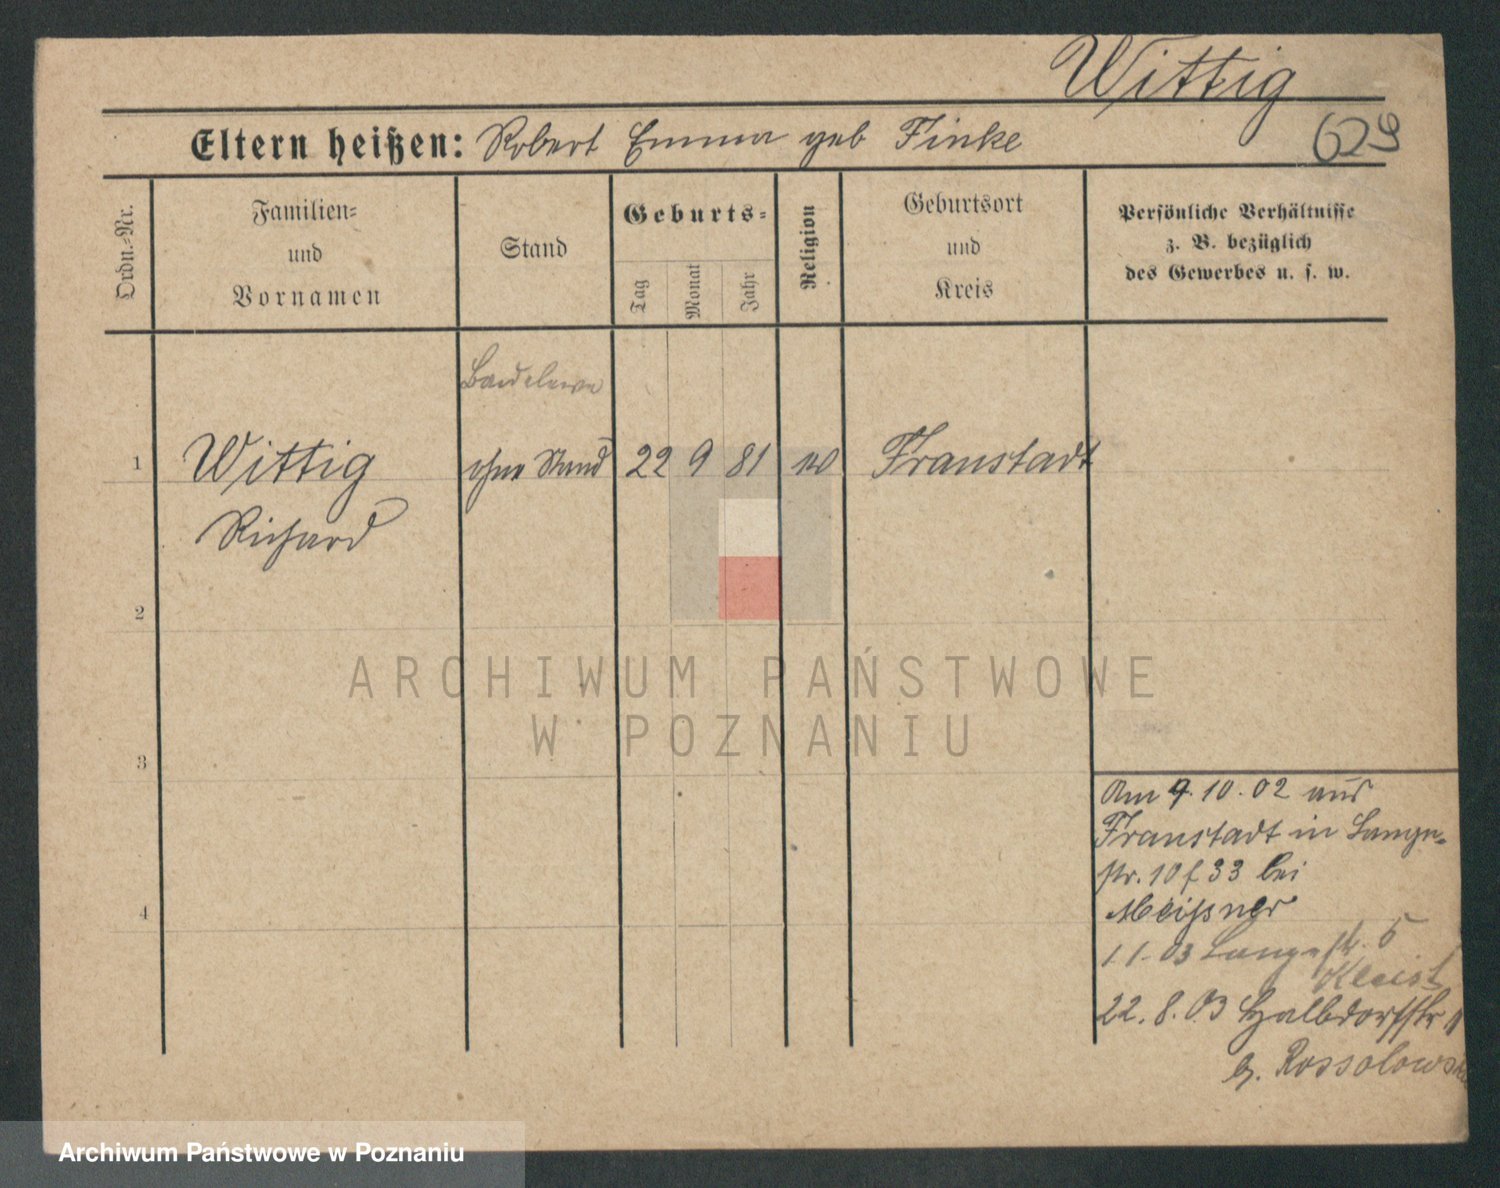 Wittig
629
Eltern heißen: Robert Emma geb Finke
Ordn.-Nr.
Familien-
und
Vornamen
Stand
Geburts-
Tag
Monat
Jahr
Religion
Geburtsort
und
Kreis
Persönliche Verhältnisse
z. B. bezüglich
des Gewerbes u. s. w.
1
Wittig
Richard
ohne Stand
22 9 81
Fraustadt
2
3
4
Am 9.10.02 aus
Fraustadt in Lange-
str. 10 f 33 bei
Meißner
1 1. 03 Langestr. 5
Kleist
22.8.03 Halbdorfstr
b. Rossolowski
ARCHIWUM PAŃSTWOWE
W POZNANIU
Archiwum Państwowe w Poznaniu